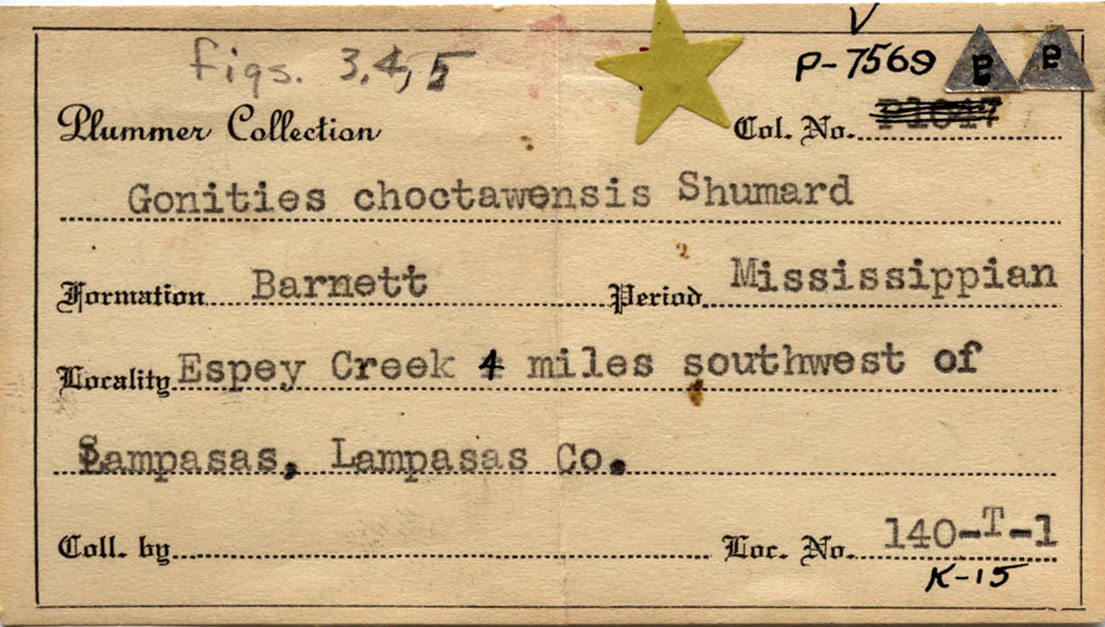 figs. 3,4,5
V
P-7569
Plummer Collection Col. No. P1047
Gonities choctawensis Shumard
Formation Barnett Period Mississippian
Locality Espey Creek 4 miles southwest of
Lampasas, Lampasas Co.
Coll. by Loc. No. 140-T-1
K-15